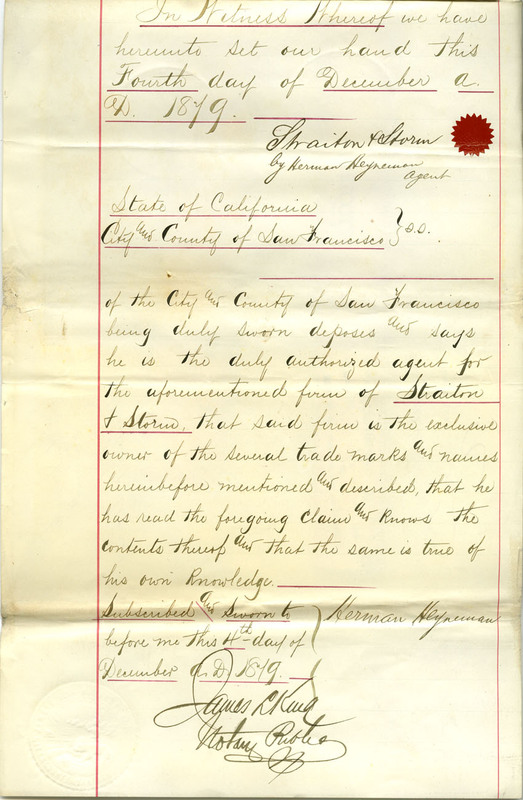 In Witness Whereof we have
hereunto set our hand this
Fourth day of December A.
D. 1879.
Straiton & Storm
by Herman Heyneman
Agent
State of California
City and County of San Francisco } s.s.
of the City and County of San Francisco
being duly sworn deposes and says
he is the duly authorized agent for
the aforementioned firm of Straiton
& Storm, that said firm is the exclusive
owner of the several trade marks and names
hereinbefore mentioned and described, that he
has read the foregoing Claim and Knows the
contents thereof and that the same is true of
his own Knowledge.
Subscribed and Sworn to } Herman Heyneman
before me this 4th day of
December A.D. 1879.
James L. King
Notary Public